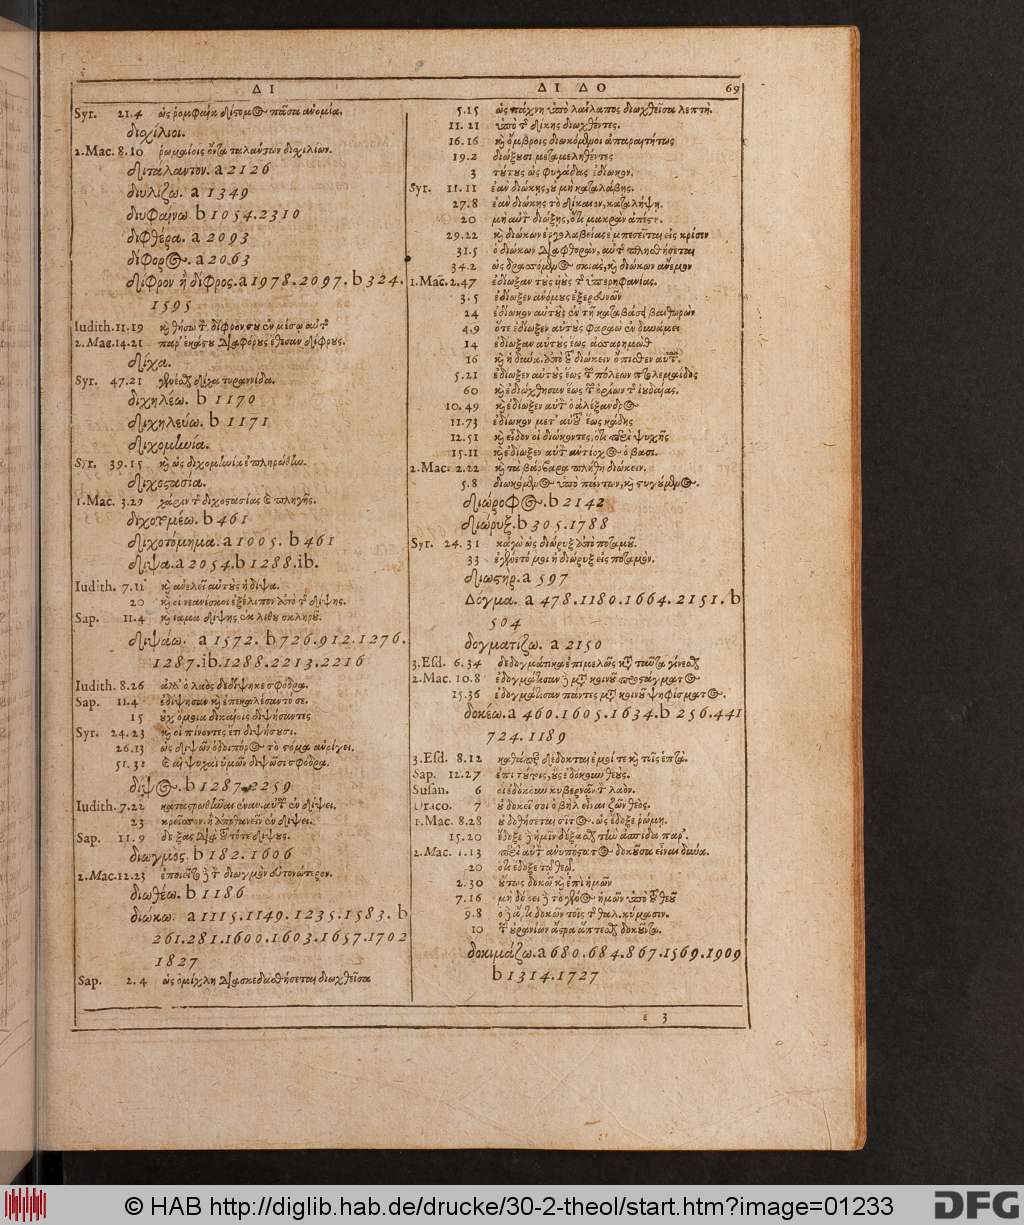 ΔΙ
ΔΙ ΔΟ 69
Syr. 21.4 ὡς ῥομφαία δίστομος πᾶσα ἀνομία.
διχίλιοι.
2.Mac. 8.10 ῥωμαίοις ὄντα ταλάντων διχιλίων.
διτάλαντον. a 2126
διυλίζω. a 1349
διυφαίνω. b 1054.2310
διφθέρα. a 2093
δίφορος. a 2063
δίφρον ἢ δίφρος. a 1978.2097. b 324.
1595
Iudith. 11.19 καὶ θήσω τ δίφρον σου ἐν μέσῳ αὐτ
2.Mac. 14.21 παρ' ἑκάστου διαφόρους ἔθεσαν δίφρους.
δίχα.
Syr. 47.21 γενέσθ δίχα τυραννίδα.
διχηλέω. b 1170
διχηλεύω. b 1171
διχομηνία.
Syr. 39.15 καὶ ὡς διχομηνία ἐπληρώθην.
διχοστασία.
1.Mac. 3.29 χάριν τ διχοστασίας καὶ πληγῆς.
διχοτομέω. b 461
διχοτόμημα. a 1005. b 461
δίψα. a 2054. b 1288. ib.
Iudith. 7.11 καὶ ἀδελεῖ αὐτοὺς ἡ δίψα.
20 καὶ οἱ νεανίσκοι ἐξέλιπον ἀπὸ τ δίψης.
Sap. 11.4 καὶ ἴαμα δίψης ἐκ λίθου σκληροῦ.
διψάω. a 1572. b 726.912.1276.
1287. ib. 1288.2213.2216
Iudith. 8.26 ἀλλ' ὁ λαὸς δεδίψηκε σφόδρα.
Sap. 11.4 ἐδίψησαν καὶ ἐπεκαλέσαντό σε.
15 οὐχ ὅμοια δικαίοις διψήσαντες
Syr. 24.23 καὶ οἱ πίνοντές ἔτι διψήσουσι.
26.13 ὡς διψῶν ὁδοιπόρος τὸ στόμα ἀνοίγει.
51.32 καὶ αἱ ψυχαὶ ὑμῶν διψῶσι σφόδρα.
δίψος. b 1287.2259
Iudith. 7.22
23 κρεῖσσον. ἢ ἀποθανεῖν ἐν δίψει.
Sap. 11.9
διωγμὸς. b 182.1606
2.Mac. 12.23 ἐποιεῖτο τ διωγμὸν εὐτονώτερον.
διωθέω. b 1186
διώκω. a 1115.1149.1235.1583. b
261.281.1600.1603.1657.1702
1827
Sap. 2.4 ὡς ὁμίχλη διασκεδασθήσεται διωχθεῖσα
5.15 ὡς πάχνη ὑπὸ λαίλαπος διωχθεῖσα λεπτὴ.
11.21 ὑπὸ τ δίκης διωχθέντες.
16.16 καὶ ὄμβροις διωκόμενοι ἀπαραιτήτως
19.2 διώξουσι μεταμεληθέντες
3 τούτους ὡς φυγάδας ἐδίωκον.
Syr. 11.11 ἐὰν διώκης, οὐ μὴ καταλάβης.
27.8 ἐὰν διώκης τὸ δίκαιον, καταλήψη.
20 μὴ αὐτ διώξης, ὅτι μακρὰν ἀπέστη.
29.22 καὶ διώκων ἐργολαβείας ἐμπεσεῖται εἰς κρίσιν
31.5 ὁ διώκων διαφθορὰν, αὐτ πλησθήσεται
34.2 ὡς δρασσόμενος σκιᾶς, καὶ διώκων ἄνεμον
1.Mac. 2.47 ἐδίωξαν τοὺς υἱοὺς τ ὑπερηφανίας.
3.5 ἐδίωξεν ἀνόμους ἐξερευνῶν
24 ἐδίωκον αὐτοὺς ἐν τῇ καταβάσει βαιθωρὼν
4.9 ὅτε ἐδίωξεν αὐτοὺς φαραὼ ἐν δυνάμει
14 ἐδίωξαν αὐτοὺς ἕως ἀσσαρημωθ
16 διώκειν ὄπισθεν αὐτ.
5.21 ἐδίωξεν αὐτοὺς ἕως τ πόλεων πτολεμαίδος
60 καὶ ἐδιώχθησαν ἕως τ ὁρίων τ ἰουδαίας.
10.49 καὶ ἐδίωξεν αὐτ ὁ ἀλέξανδρος
11.73 ἐδίωκον μετ' αὐτ ἕως κάδης
12.51 καὶ εἶδον οἱ διώκοντες, ὅτι περὶ ψυχῆς
15.11 καὶ ἐδίωξεν αὐτ ἀντίοχος ὁ βασι.
2.Mac. 2.22 καὶ τὰ βάρβαρα πλήθη διώκειν.
5.8 διωκόμενος ὑπὸ πάντων, καὶ στυγούμενος.
διώροφος. b 2142
διώρυξ. b 305.1788
Syr. 24.31 κἀγὼ ὡς διώρυξ ἀπὸ ποταμοῦ.
33 ἐγένετό μοι ἡ διώρυξ εἰς ποταμὸν.
διωστὴρ. a 597
Δόγμα. a 478.1180.1664.2151. b
504
δογματίζω. a 2150
3.Esd. 6.34 δεδογμάτικα ἐπιμελῶς καὶ ταῦτα γίνεσθ
2.Mac. 10.8 ἐδογμάτισαν μετὰ κοινοῦ προστάγματος
15.36 ἐδογμάτισαν πάντες μετὰ κοινοῦ ψηφίσματος.
δοκέω. a 460.1605.1634. b 256.441
724.1189
3.Esd. 8.12 καθάπερ δέδοκται ἐμοί τε καὶ τοῖς ἑπτα.
Sap. 12.27 ἐπὶ τούτοις, οὓς ἐδόκουν θεοὺς.
Susan. 6 οἳ ἐδόκουν κυβερνᾶν τ λαὸν.
Draco. 7 οὐ δοκεῖ σοι ὁ βὴλ εἶναι ζῶν θεὸς.
1.Mac. 8.28 οὐ δοθήσεται σῖτος. ὡς ἔδοξε ῥώμη.
15.20 ἔδοξε ἡμῖν δέξασθ τὴν ἀσπίδα παρ'.
2.Mac. 1.13 περὶ αὐτ ἀνυπόστατος δοκοῦσα εἶναι δύνα.
20 ὅτι ἔδοξε τῷ θεῷ.
2.30 οὕτως δοκῶ καὶ ἐπὶ ἡμῶν
7.16 μὴ δόκει τὸ γένος ἡμῶν ὑπὸ τ θεοῦ
9.8 δοκῶν τοῖς τ θαλ. κύμασιν.
10 τ οὐρανίων ἄστρα ἅπτεσθ δοκοῦντα.
δοκιμάζω. a 680.684.867.1569.1909
b 1314.1727
e 3
© HAB http://diglib.hab.de/drucke/30-2-theol/start.htm?image=01233
DFG